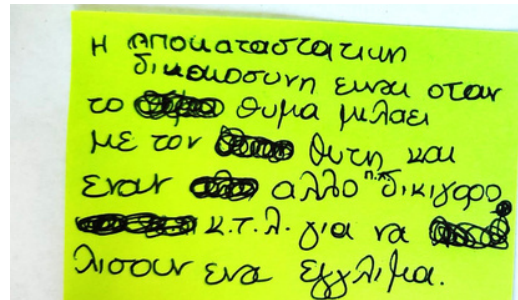 Η αποκαταστατικη
δικαιοσυνη ειναι οταν
το θυμα μιλαει
με τον θυτη και
εναν αλλο π.χ. δικιγορο
κ.τ.λ. για να
λισουν ενα εγγλιμα.